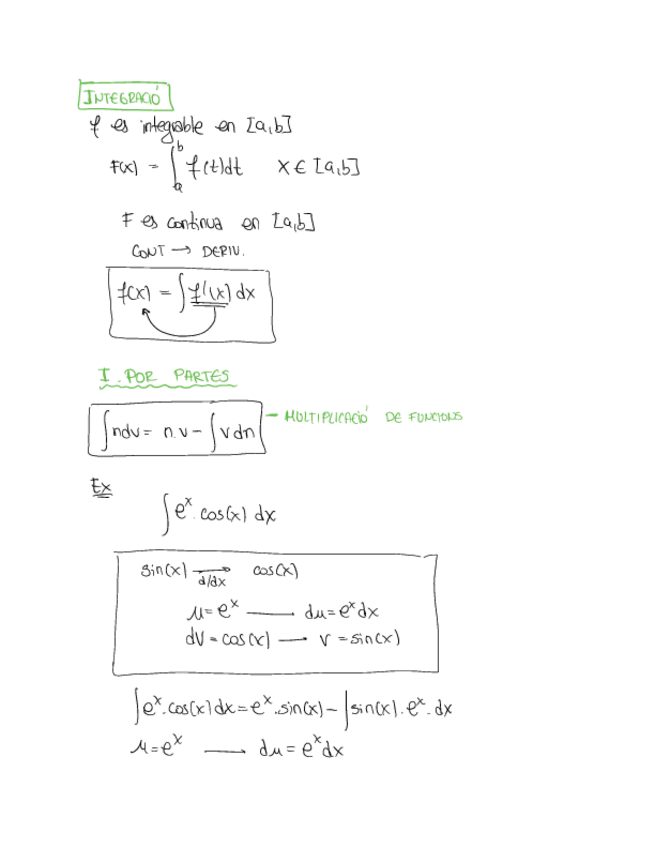 INTEGRACIÓ
f es integrable en [a,b]
F(x) = ∫_a^b f(t)dt x ∈ [a,b]
F es continua en [a,b]
CONT → DERIV.
f(x) = ∫ f'(x) dx
I. POR PARTES
∫ndv = n.v - ∫v dn - MULTIPLICACIÓ DE FUNCIONS
Ex
∫ e^x . cos(x) dx
sin(x) → d/dx cos(x)
μ = e^x — dμ = e^x dx
dv = cos(x) — v = sin(x)
∫e^x . cos(x) dx = e^x . sin(x) - ∫sin(x) . e^x . dx
μ = e^x — dμ = e^x dx